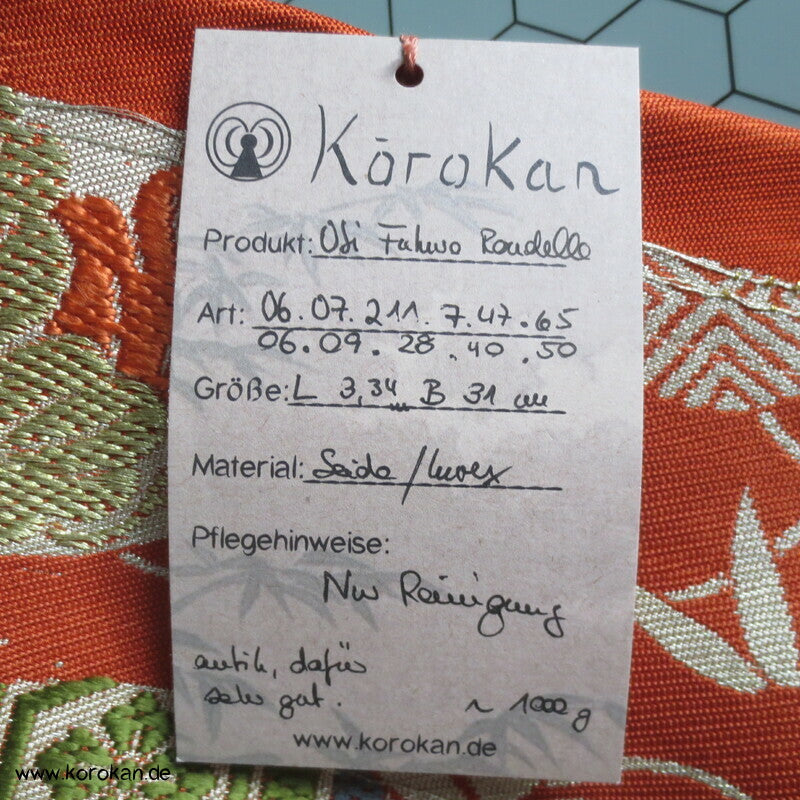 Kōrokan
Produkt: Obi Fukuro Rondelle
Art: 06.07.211.7.47.65
06.09.28.40.50
Größe: L 3,34 B 31 cm
Material: Seide / Lurex
Pflegehinweise:
Nur Reinigung
antik, dafür
sehr gut.
~ 1000 g
www.korokan.de
www.korokan.de